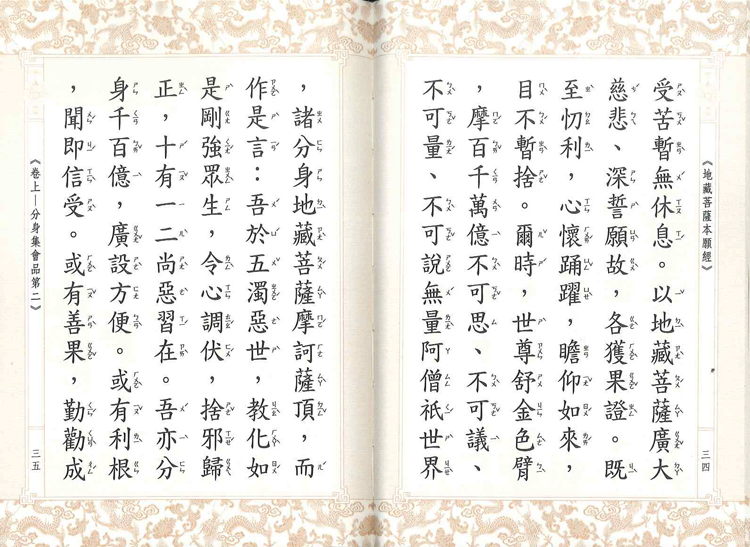 《地藏菩薩本願經》
三四
受苦暫無休息。以地藏菩薩廣大
慈悲、深誓願故，各獲果證。既
至忉利，心懷踊躍，瞻仰如來，
目不暫捨。爾時，世尊舒金色臂
，摩百千萬億不可思、不可議、
不可量、不可說無量阿僧祇世界
，諸分身地藏菩薩摩訶薩頂，而
作是言：吾於五濁惡世，教化如
是剛強眾生，令心調伏，捨邪歸
正，十有一二尚惡習在。吾亦分
身千百億，廣設方便。或有利根
，聞即信受。或有善果，勤勸成
《卷上—分身集會品第二》
三五